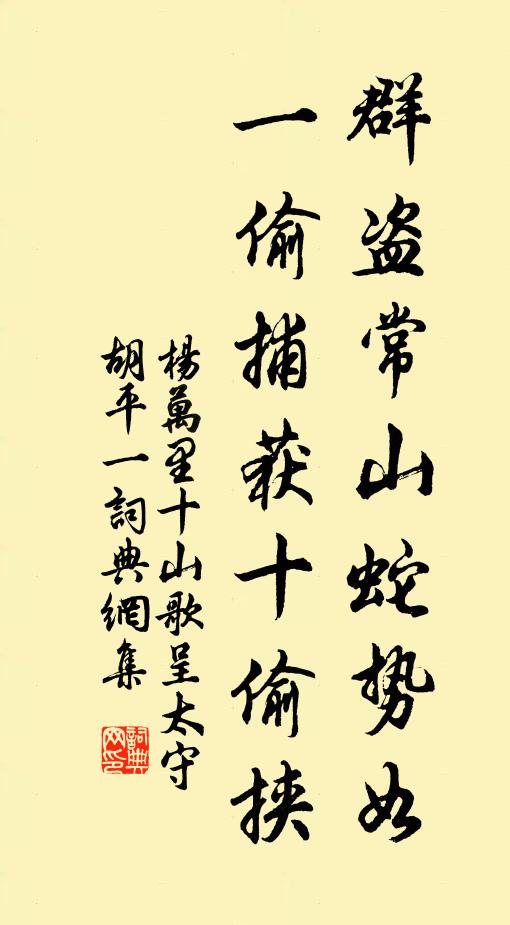 群盗常山蛇势如
一偷捕获十偷挟
楊萬里十山歌呈太守
胡平一詞典網集
詞典
网印